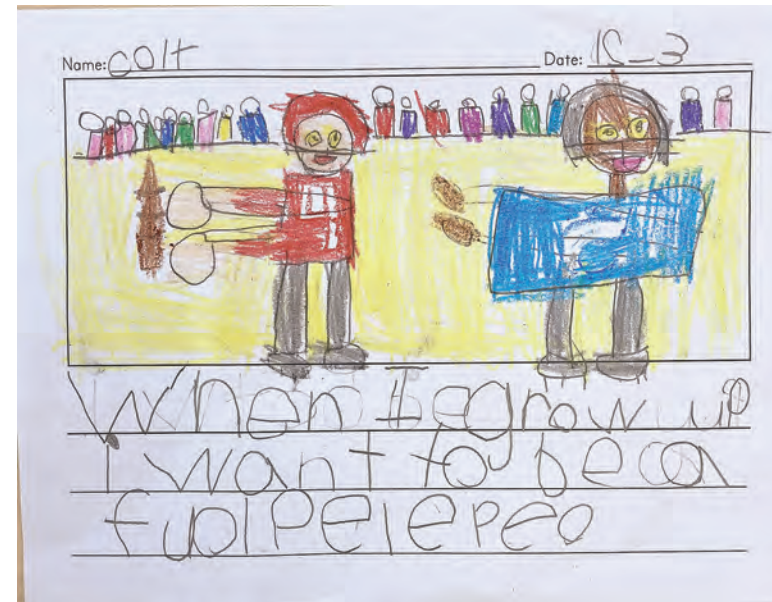 Name: Colt Date: 12-3
When I grow up
i want to be a
fuolpelepeo